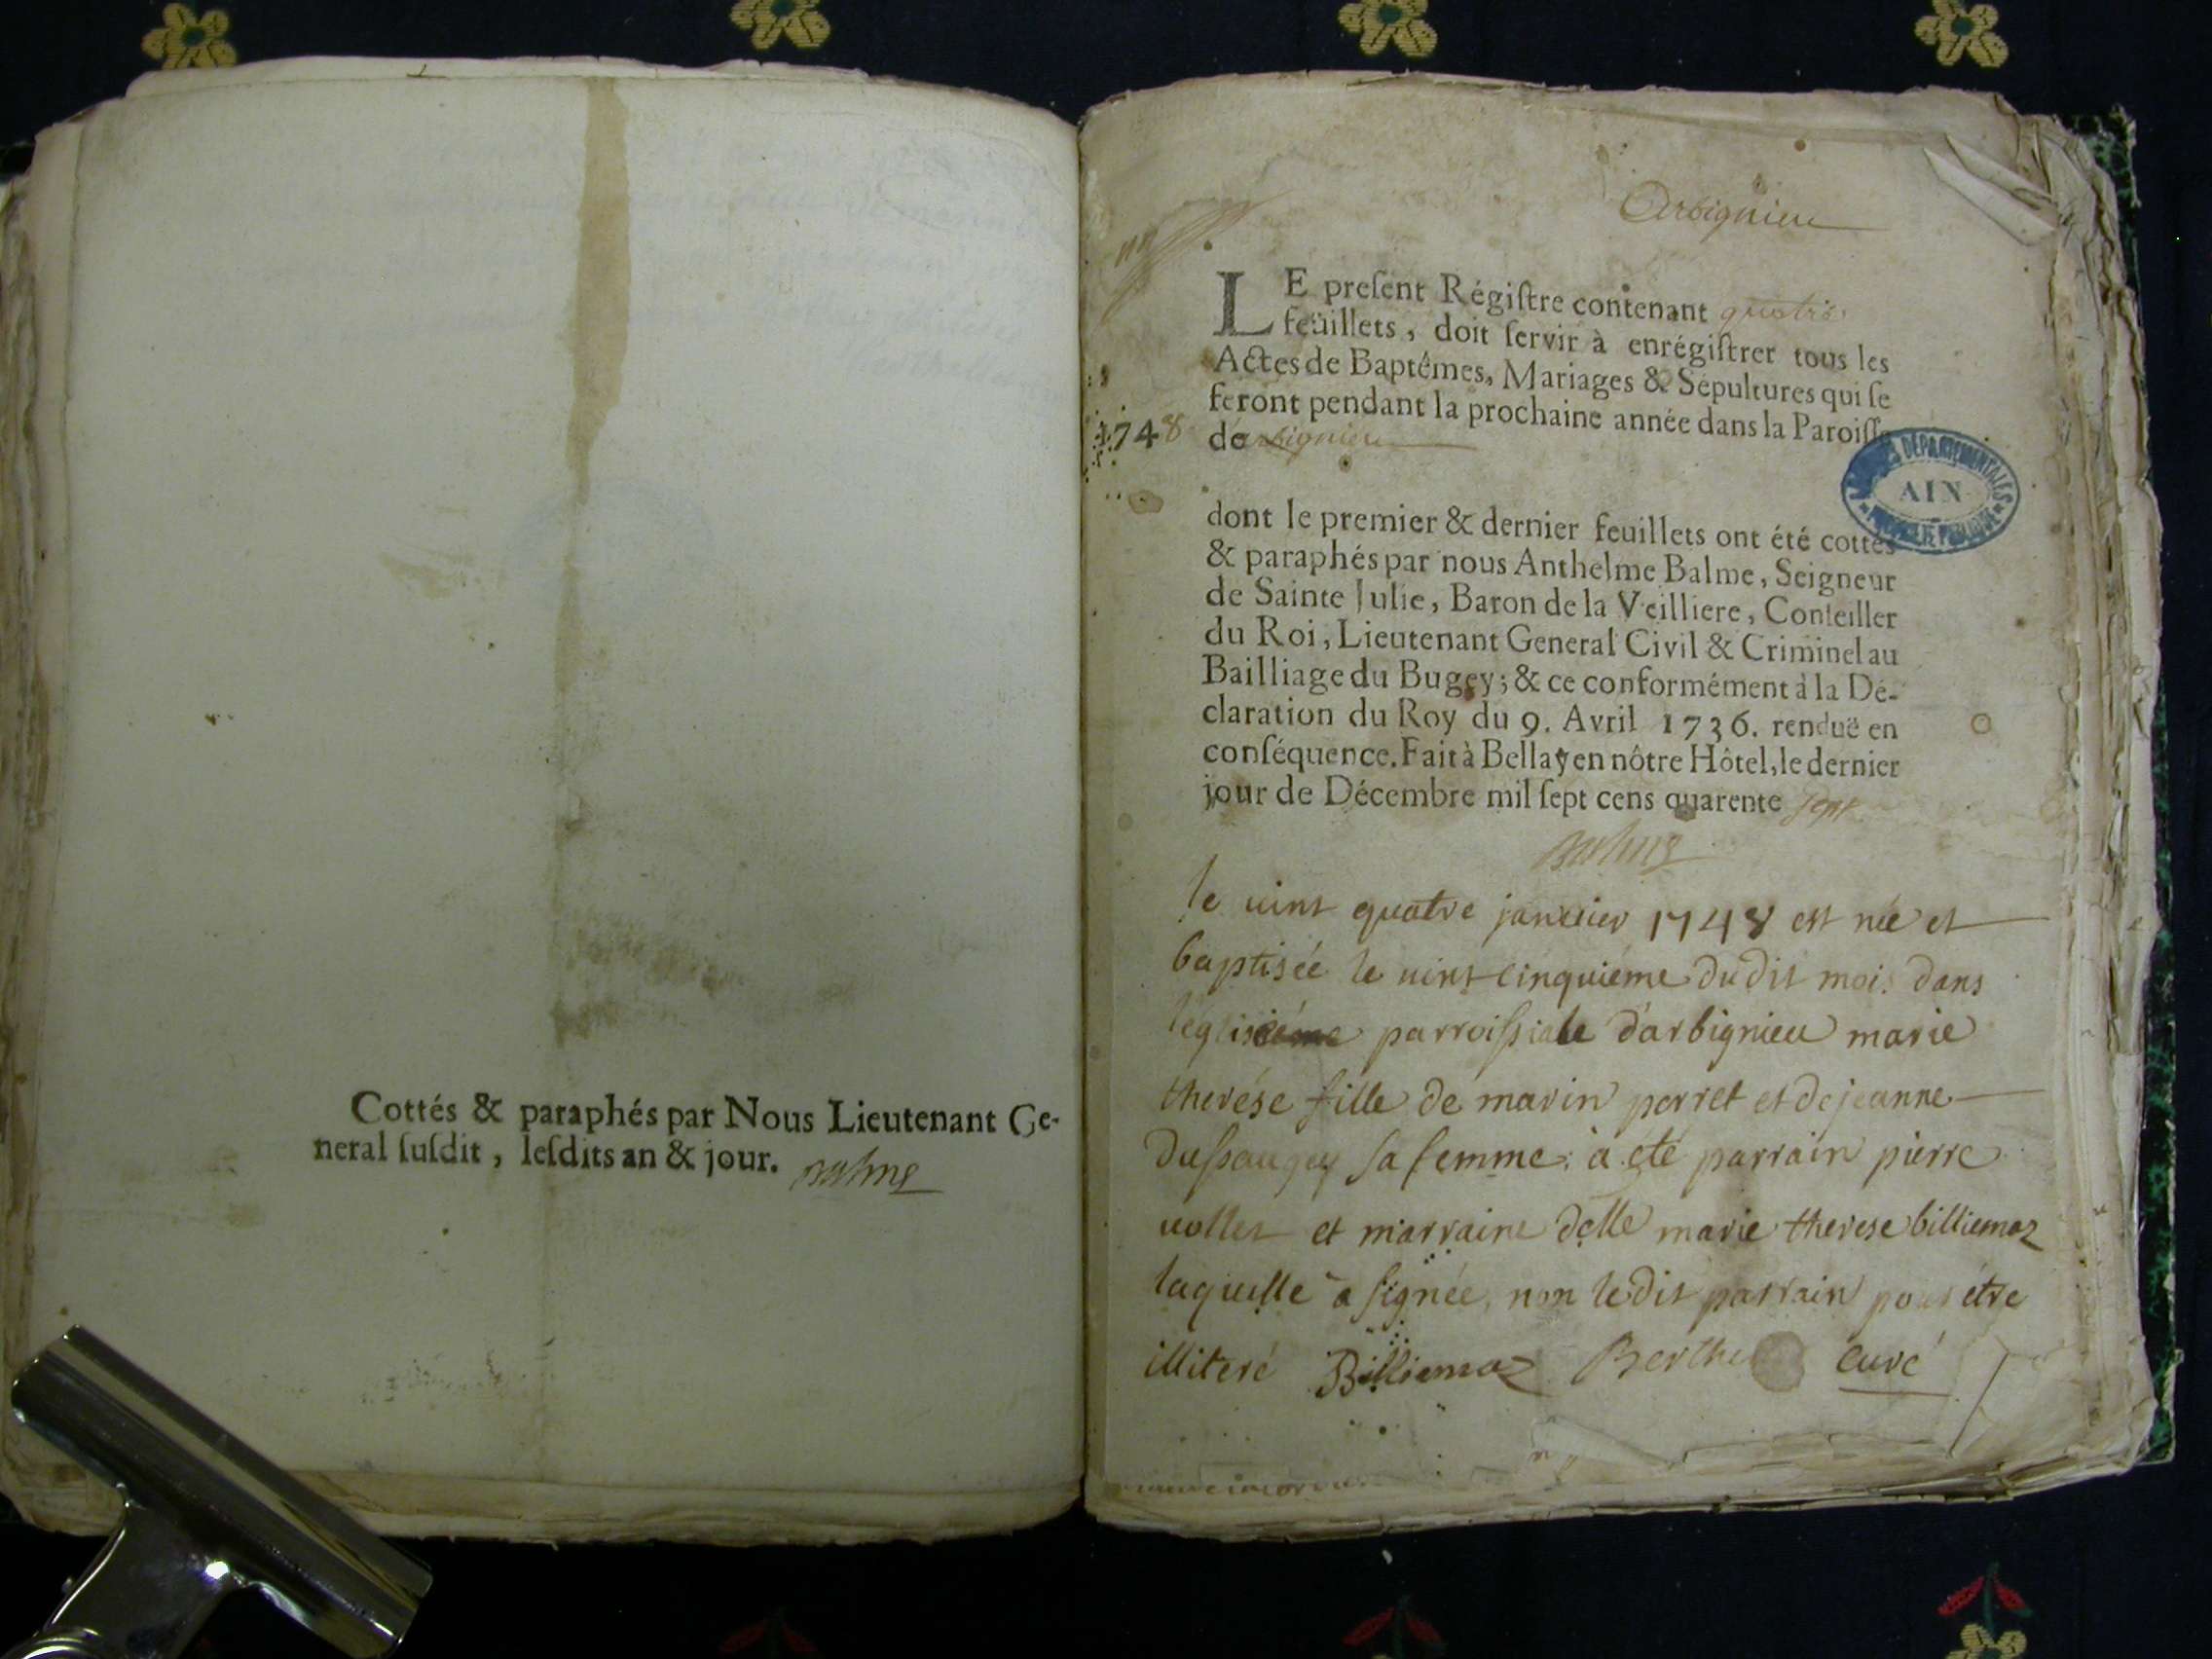 Cottés & paraphés par Nous Lieutenant Ge-
neral ſuſdit, leſdits an & jour. Balme
Arbignieu
LE preſent Régiſtre contenant quatre
feüillets, doit ſervir à enrégiſtrer tous les
Actes de Baptêmes, Mariages & Sépultures qui ſe
feront pendant la prochaine année dans la Paroiſſe
1748
d'arbignieu
ARCHIVES DÉPARTEMENTALES
AIN
dont le premier & dernier feuillets ont été cottés
& paraphés par nous Anthelme Balme, Seigneur
de Sainte Julie, Baron de la Veilliere, Conſeiller
du Roi, Lieutenant General Civil & Criminel au
Bailliage du Bugey; & ce conformément à la Dé-
claration du Roy du 9. Avril 1736. renduë en
conſéquence. Fait à Bellay en nôtre Hôtel, le dernier
jour de Décembre mil ſept cens quarente sept
Balme
le vint quatre janvier 1748 est née et
baptisée le vint cinquiéme dudit mois dans
l'église parroissiale d'arbignieu marie
therése fille de marin perret et de jeanne
dussaugey sa femme: à eté parrain pierre
vollet et marraine delle marie therese billiemaz
laquelle a signée, non ledit parrain pour étre
illiteré Billiemaz Berthe curé